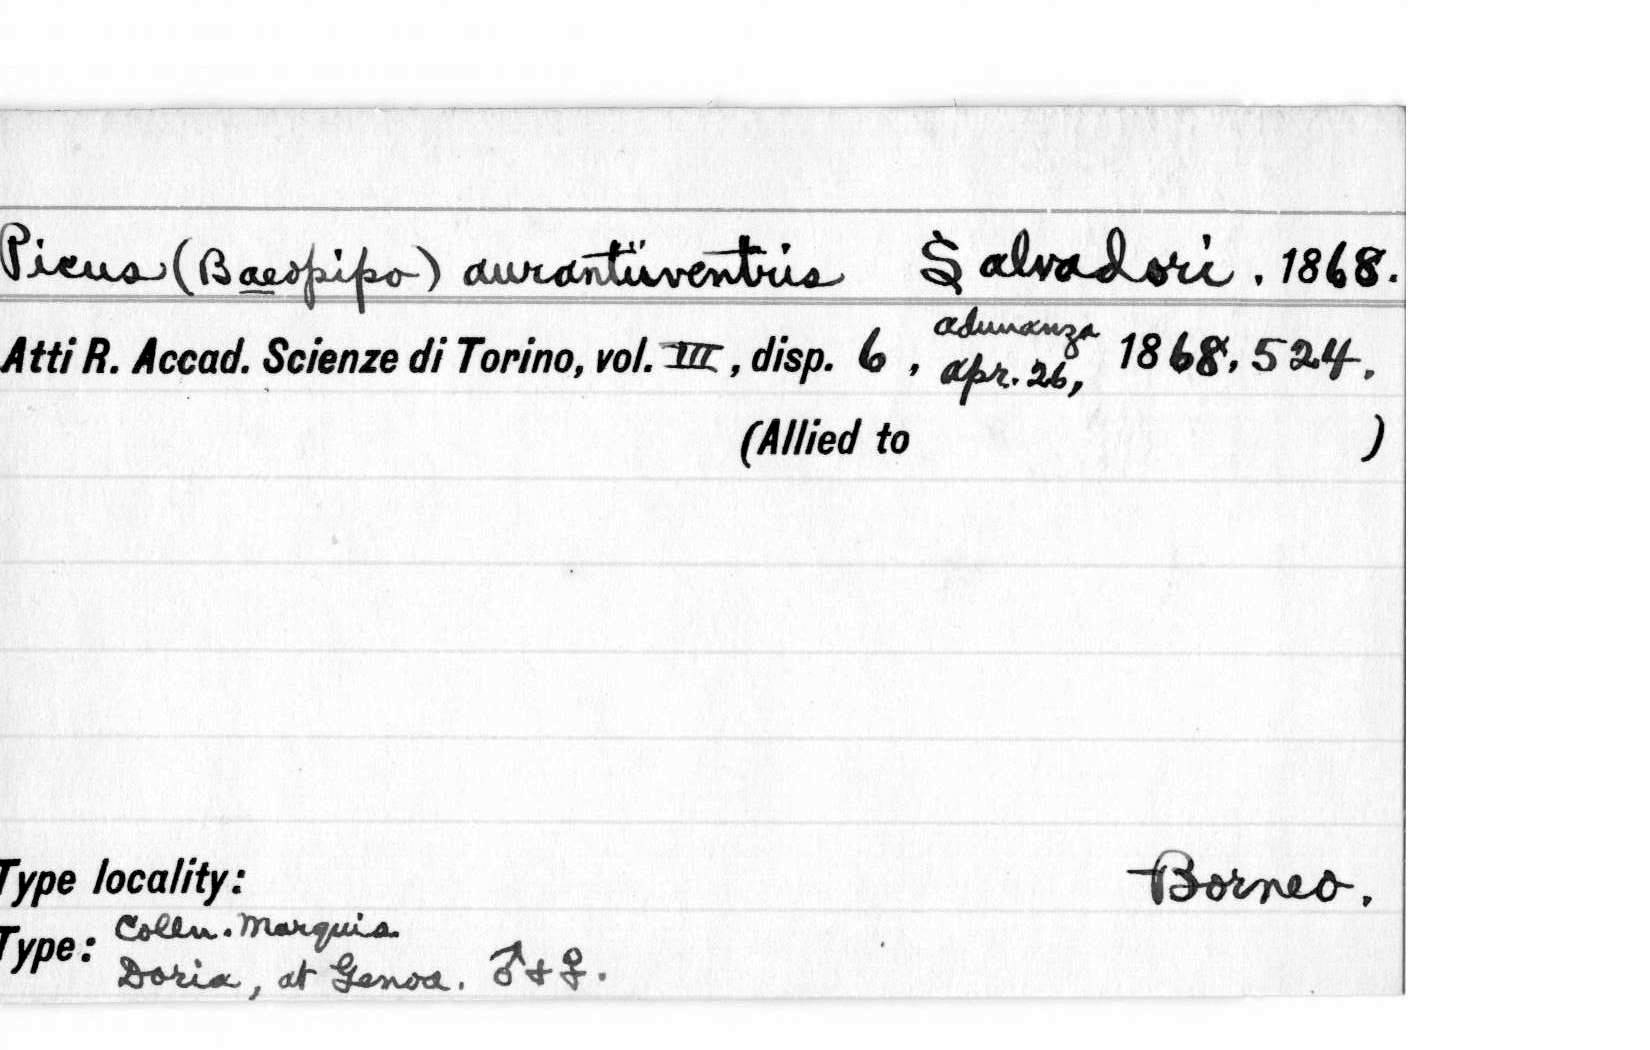 Picus (Baeopipo) aurantiiventris Salvadori. 1868.
Atti R. Accad. Scienze di Torino, vol. III, disp. 6, adunanza apr. 26, 1868, 524.
(Allied to )
Type locality: Borneo.
Type: Colln. Marquis
Doria, at Genoa. ♂ + ♀.